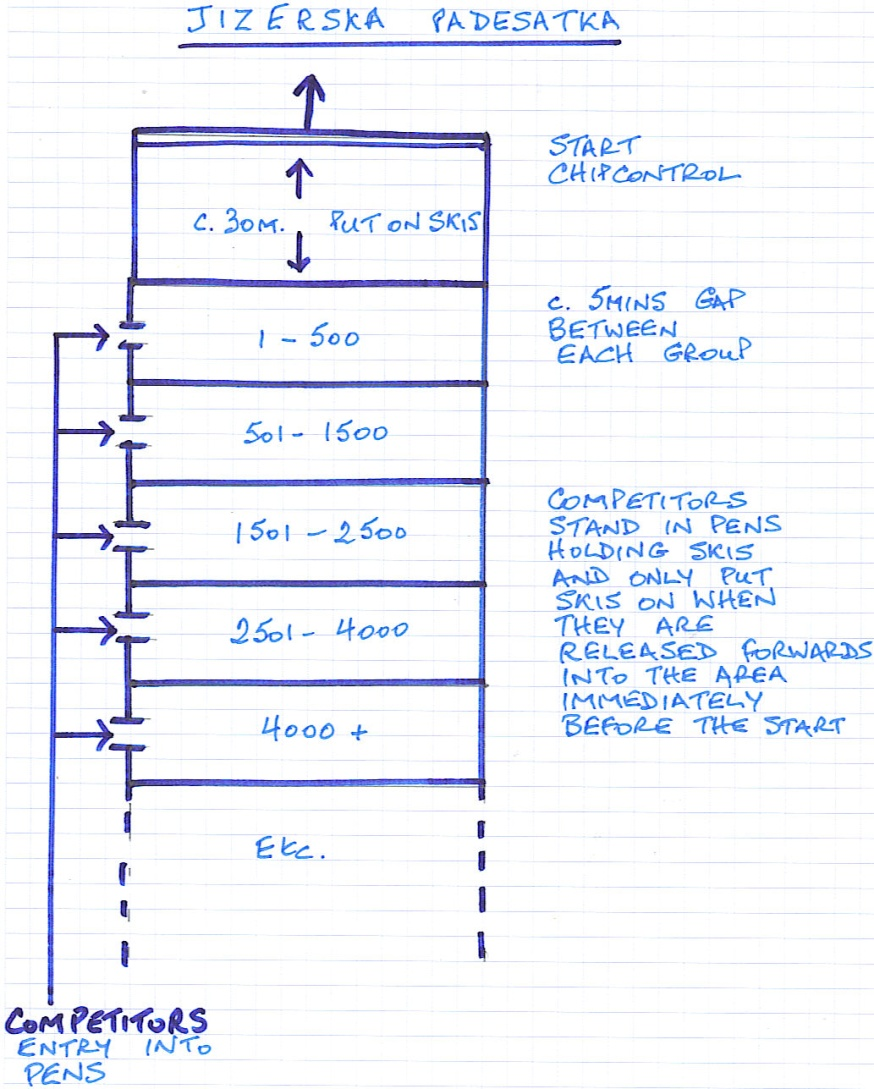 JIZERSKA PADESATKA
START
CHIPCONTROL
C. 30M. PUT ON SKIS
C. 5MINS GAP
BETWEEN
EACH GROUP
1 - 500
501 - 1500
1501 - 2500
2501 - 4000
4000 +
Etc.
COMPETITORS
STAND IN PENS
HOLDING SKIS
AND ONLY PUT
SKIS ON WHEN
THEY ARE
RELEASED FORWARDS
INTO THE AREA
IMMEDIATELY
BEFORE THE START
COMPETITORS
ENTRY INTO
PENS